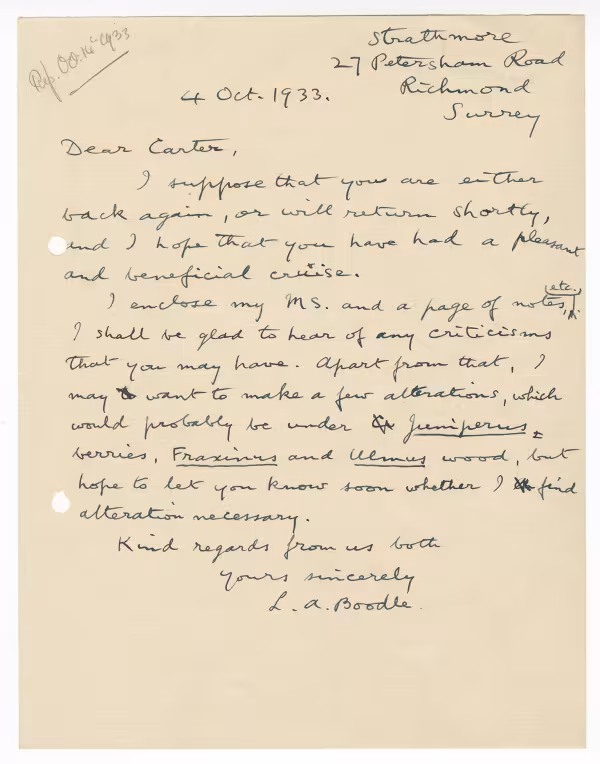 Rep. Oct. 16 1933
Strathmore
27 Petersham Road
Richmond
Surrey
4 Oct. 1933.
Dear Carter,
I suppose that you are either
back again, or will return shortly,
and I hope that you have had a pleasant
and beneficial cruise.
I enclose my MS. and a page of notes, etc.,
I shall be glad to hear of any criticisms
that you may have. Apart from that, I
may want to make a few alterations, which
would probably be under Juniperus
berries, Fraxinus and Ulmus wood, but
hope to let you know soon whether I find
alteration necessary.
Kind regards from us both
Yours sincerely
L. A. Boodle.